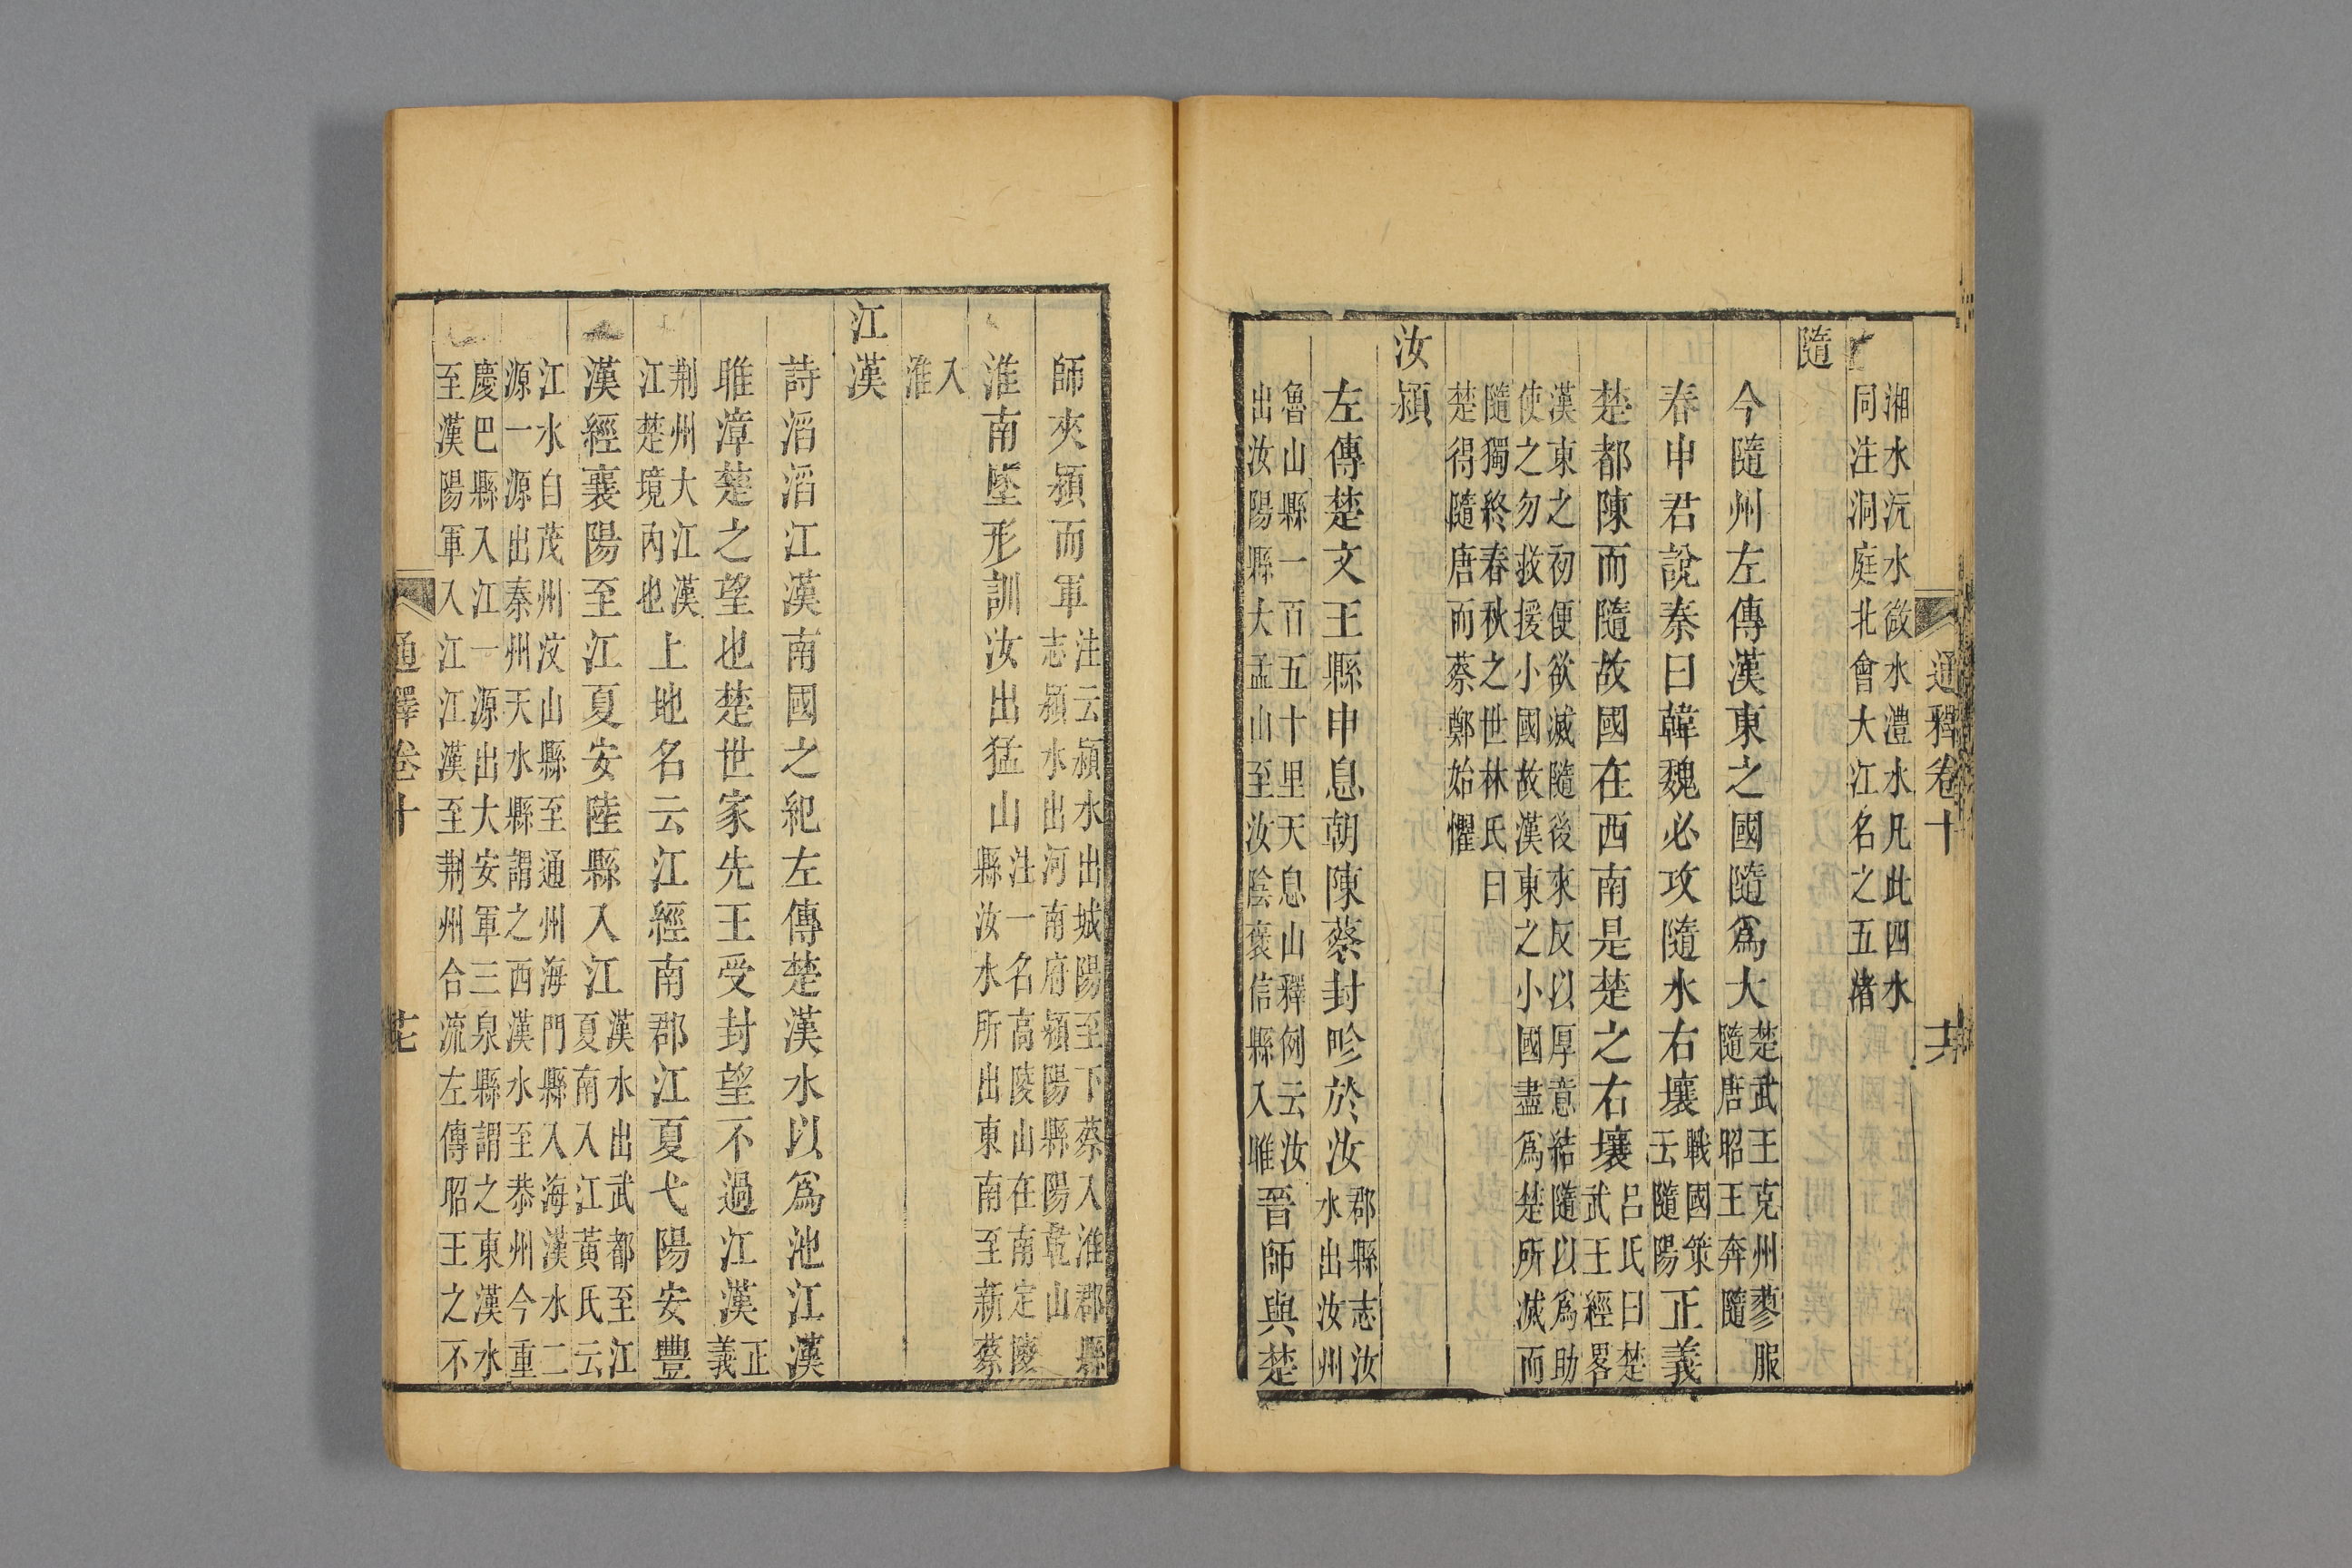 通釋卷十
湘水沅水㵎水澧水凡此四水
同注洞庭北會大江名之五渚
隨
今隨州左傳漢東之國隨爲大楚武王克州蓼服
隨唐昭王奔隨
春申君說秦曰韓魏必攻隨水右壤戰國策正義
云隨陽
楚都陳而隨故國在西南是楚之右壤呂氏曰楚
武王經畧
漢東之初便欲滅隨後來反以厚意結隨以爲助
使之勿救援小國故漢東之小國盡爲楚所滅而
隨獨終春秋之世林氏曰
楚得隨唐而蔡鄭始懼
汝潁
左傳楚文王縣申息朝陳蔡封畛於汝郡縣志汝
水出汝州
魯山縣一百五十里天息山釋例云汝晉師與楚
出汝陽縣大孟山至汝陰褒信縣入睢
師夾潁而軍注云潁水出城陽至下蔡入淮郡縣
志潁水出河南府潁陽縣陽乾山
淮南墬形訓汝出猛山注一名高陵山在南定陵
縣汝水所出東南至新蔡
入
淮
江漢
詩滔滔江漢南國之紀左傳楚漢水以爲池江漢
睢漳楚之望也楚世家先王受封望不過江漢正
義
荆州大江漢上地名云江經南郡江夏弋陽安豐
江楚境內也
漢經襄陽至江夏安陸縣入江漢水出武都至江
夏南入江黃氏云
江水自茂州汶山縣至通州海門縣入海漢水二
源一源出秦州天水縣謂之西漢水至恭州今重
慶巴縣入江一源出大安軍三泉縣謂之東漢水
至漢陽軍入江江漢至荆州合流左傳昭王之不
通釋卷十